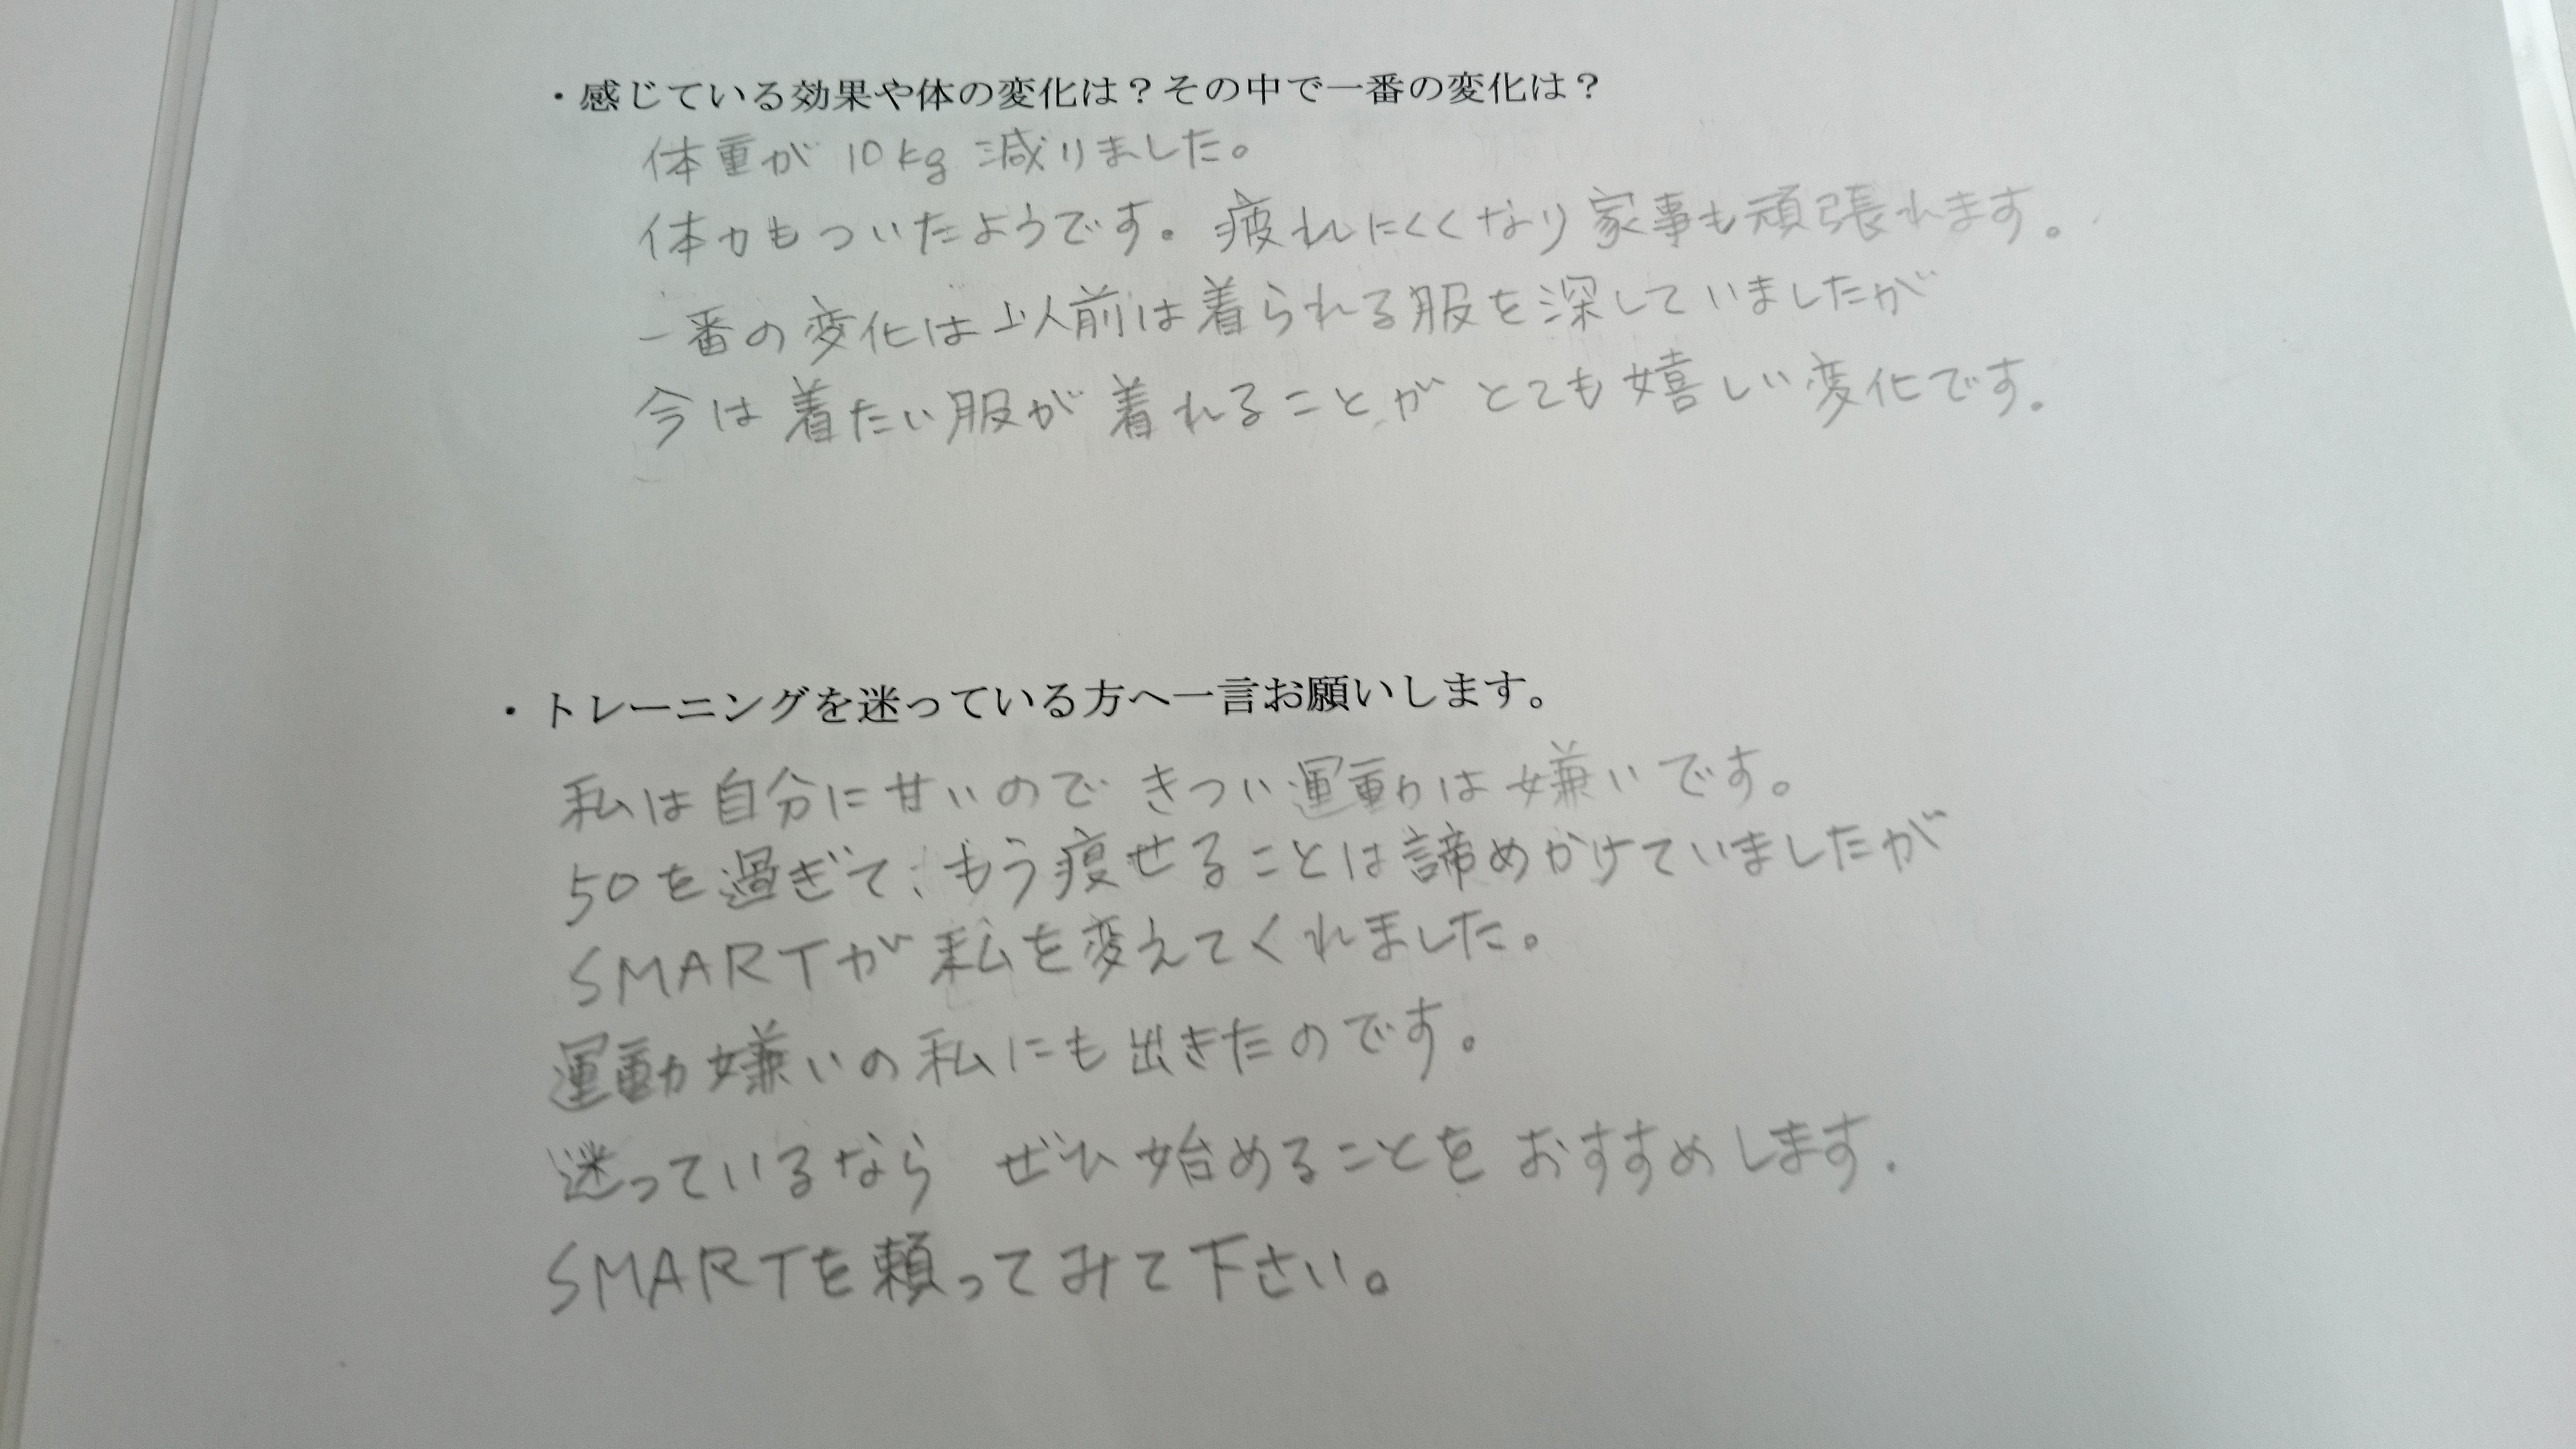 ・感じている効果や体の変化は？その中で一番の変化は？
体重が 10kg 減りました。
体力もついたようです。疲れにくくなり家事も頑張れます。
一番の変化は以前は着られる服を深していましたが
今は着たい服が着れることがとても嬉しい変化です.
・トレーニングを迷っている方へ一言お願いします。
私は自分に甘いのできつい運動は嫌いです。
50を過ぎて、もう痩せることは諦めかけていましたが
SMARTが私を変えてくれました。
運動嫌いの私にも出きたのです。
迷っているなら ぜひ始めることをおすすめします.
SMARTを頼ってみて下さい。